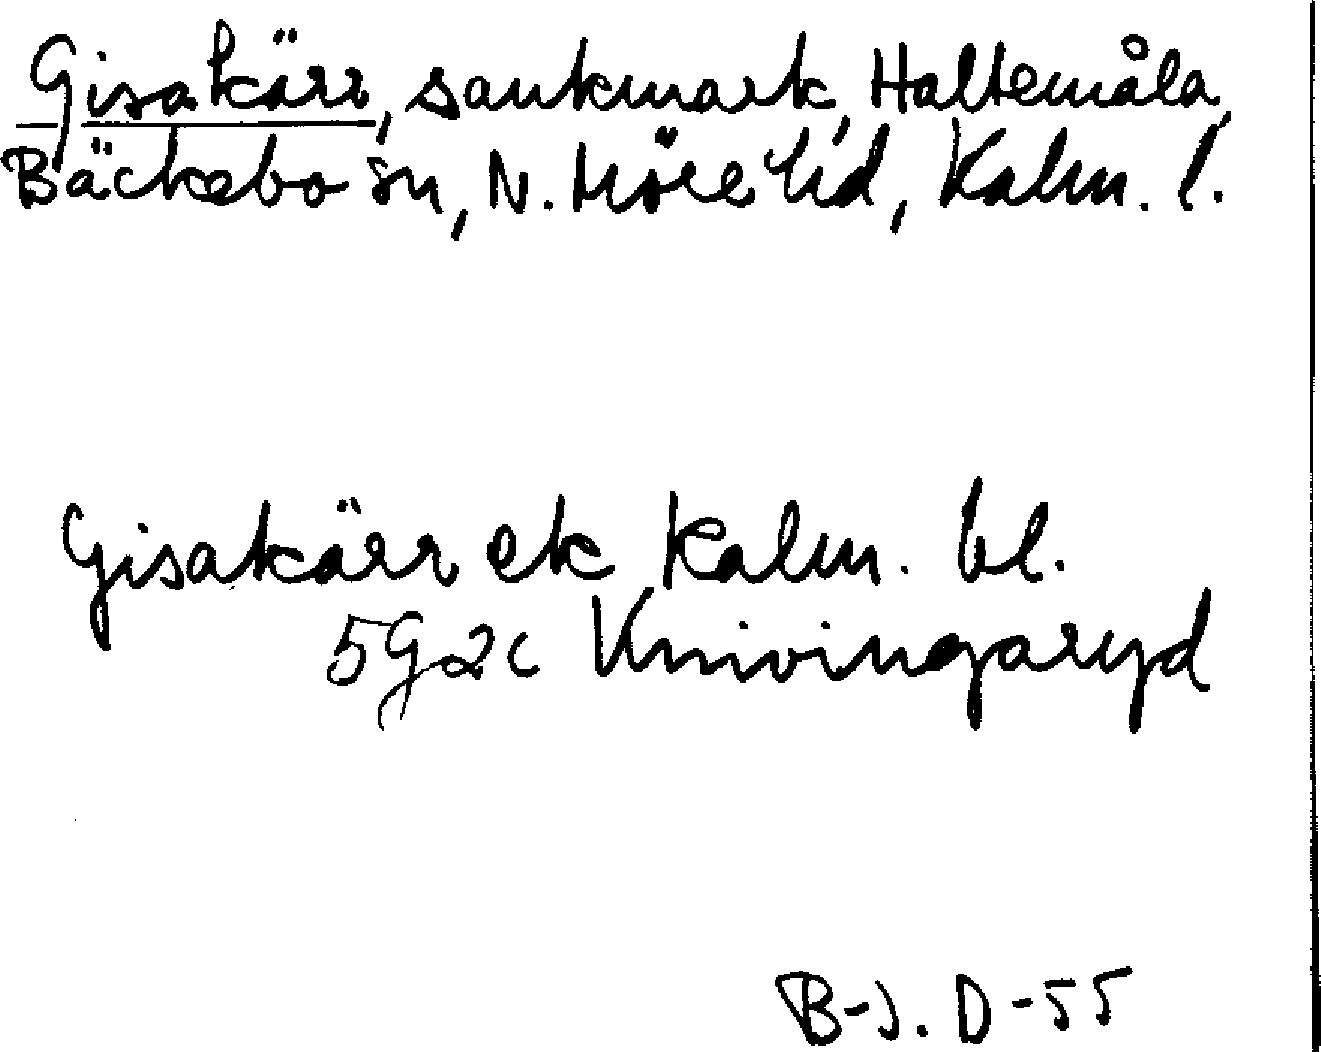 Gisakärr, sankmark, Haltemåla,
Bäckebo sn, N. Möre hd, Kalm. l.
Gisakärr ek Kalm. bl.
5G2c Knivingaryd
B-J. D-55